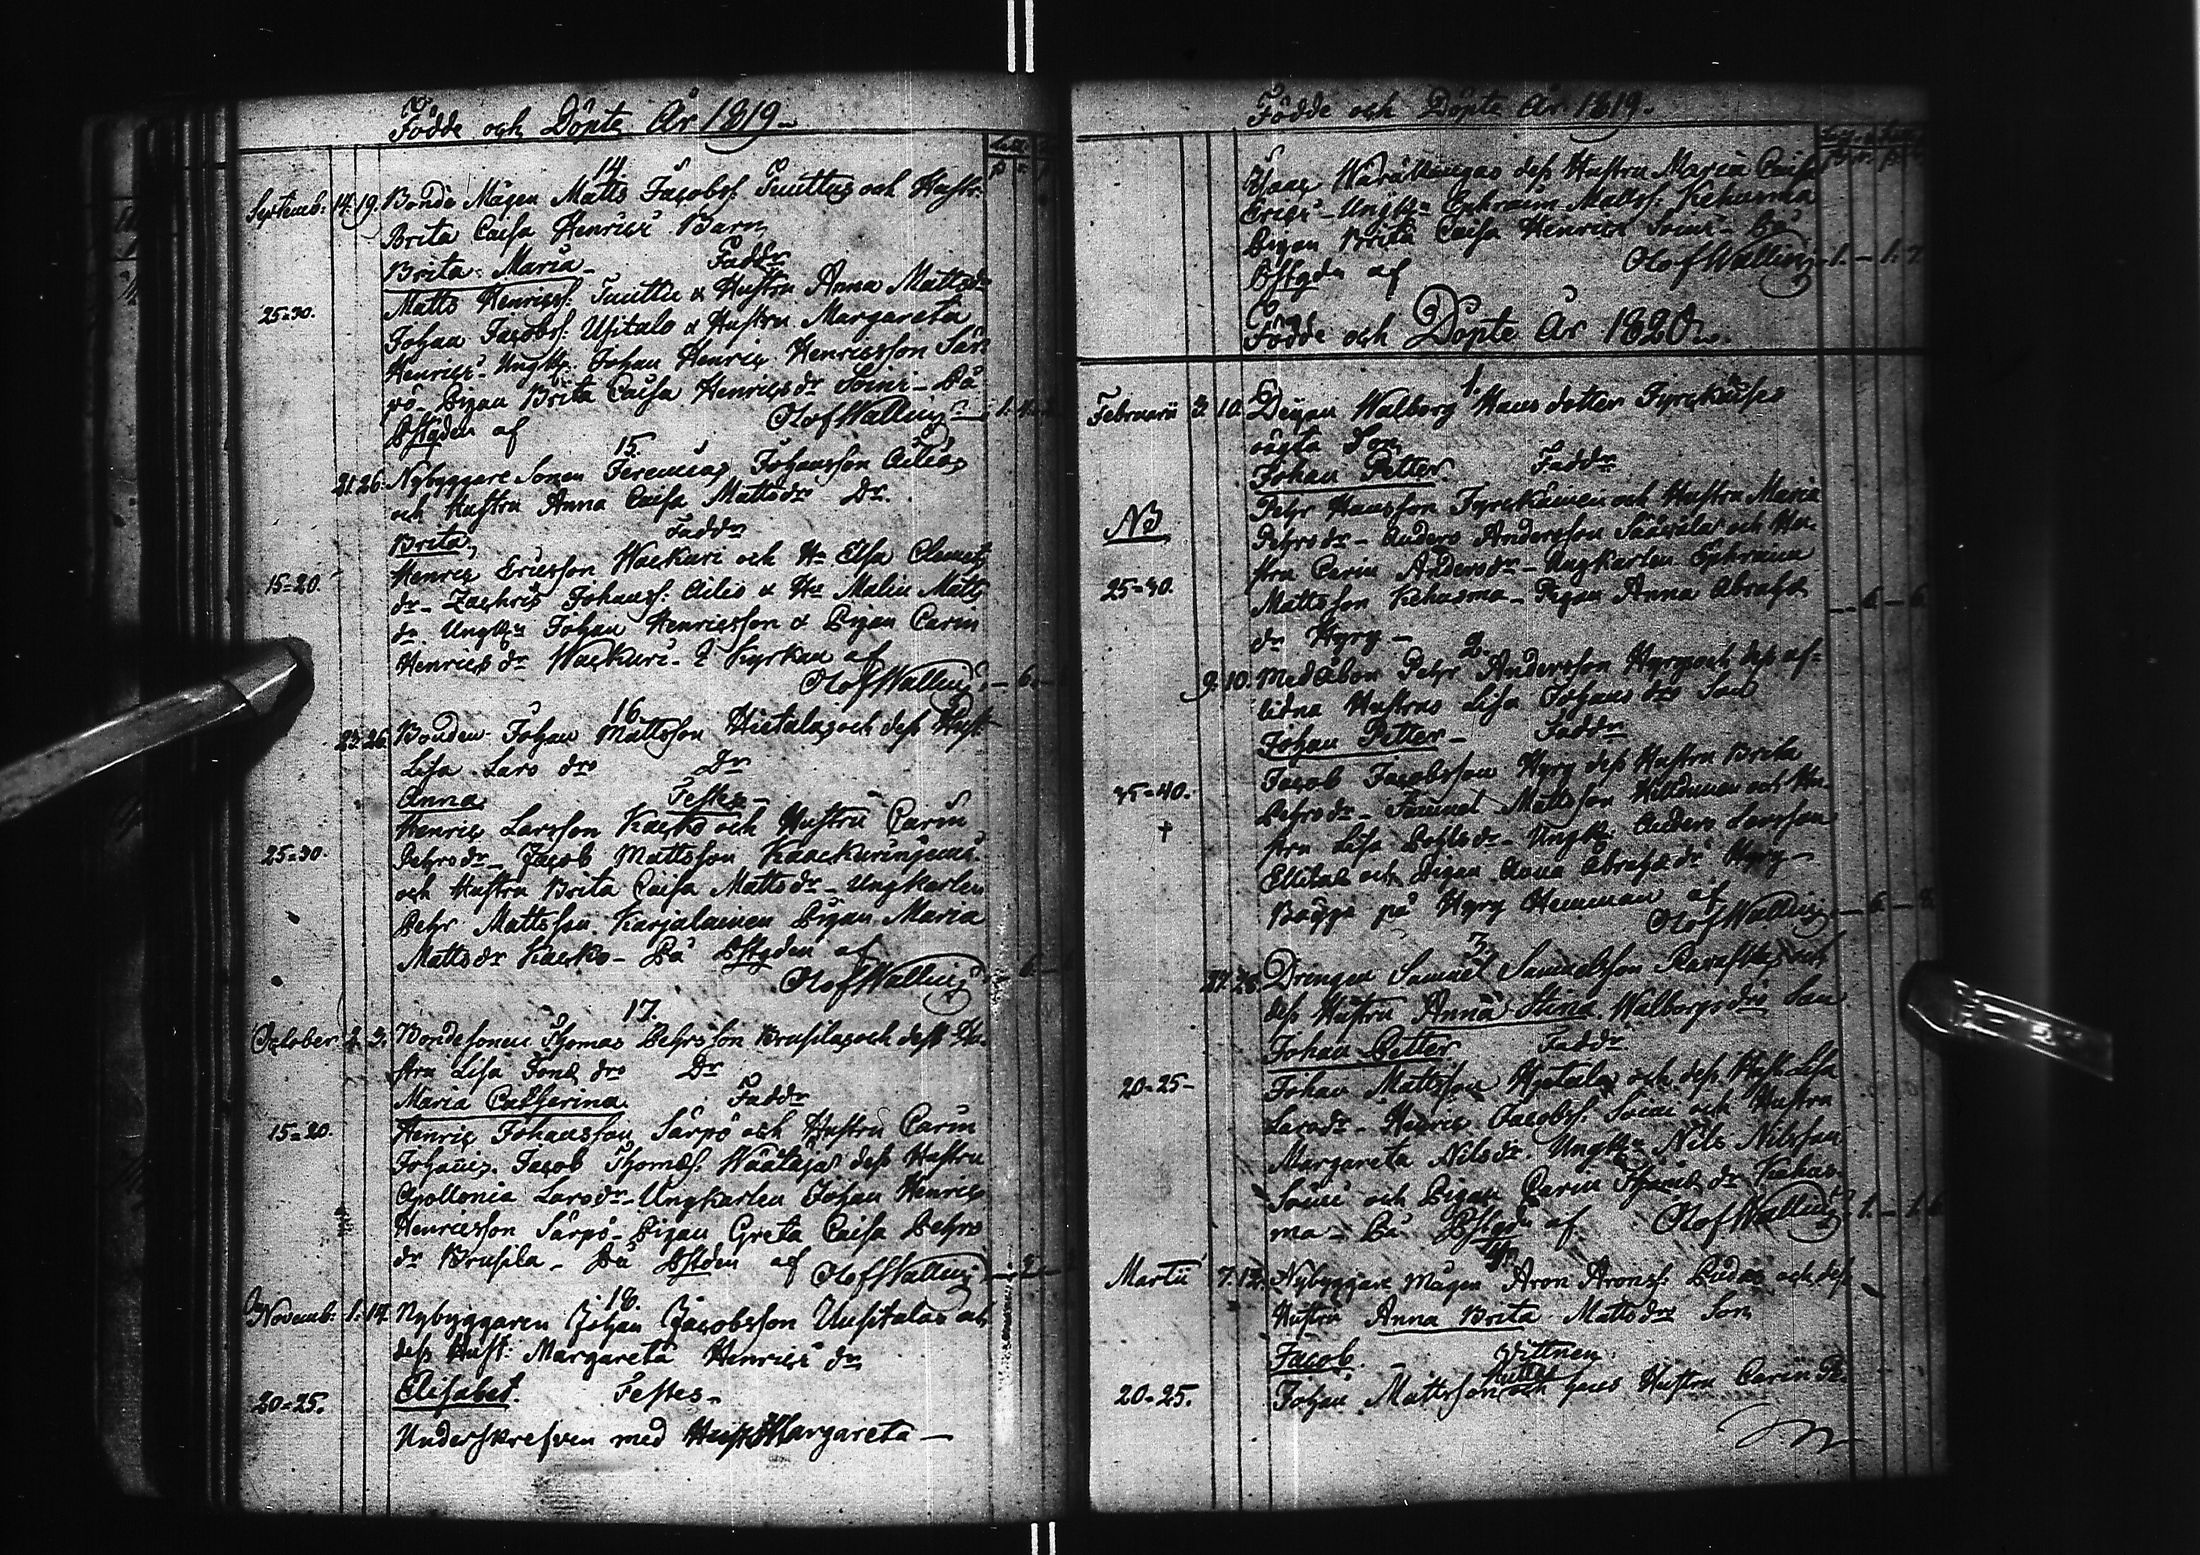 Födde och Döpte År 1819.
14.
Septemb: 14. 19. Bonde Mågen Matts Jacobss. Tuuttus och Hustr.
Brita Caisa Henrics Barn
Brita Maria Faddr
Matts Henricss. Tuuttu & Hustru Anna Mattsdr
25=30. Johan Jacobss. Usitalo & Hustru Margareta
Henrics- Ungk. Johan Henric Henricsson Sär-
pö- Pigan Brita Caisa Henricsdr Soini- På
Pstgden af Olof Wallin
15.
21. 26. Nybyggare Sonen Jeremias Johansson Ailios
och Hustru Anna Caisa Mattsdr Dr.
Brita, Faddr
Henric Ericsson Wackuri och Hu Elsa Clemets
15=20. dr- Zachris Johanss. Ailio & Hu Malin Matts
dr Ungkn Johan Henricsson & Pigan Carin
Henricsdr Wackuri- I Kyrkan af
Olof Wallin - 6. -
16.
23. 26. Bonden Johan Mattsson Hietalas och dess Hust
Lisa Lars drs Dr
Anna Testes-
Henric Larsson Kacko och Hustru Carin
25=30. Pehrsdr- Jacob Mattsson Kaackurinjemi
och Hustru Brita Caisa Mattsdr- Ungkarlen
Pehr Mattsson Karjalainen Pigan Maria
Mattsdr Kacko- På Pstgden af
Olof Wallin 6 -
17.
October 2. 3. Bondesonen Thomas Pehrsson Brusilas och dess Hu-
stru Lisa Jons drs Dr
Maria Catharina Faddr
15=20. Henric Johansson Särpö och Hustru Carin
Johanis. Jacob Thomæs. Wäätäjä dess Hustru
Apollonia Larsdr- Ungkarlen Johan Henric
Henricsson Särpö- Pigan Greta Caisa Pehrs
dr Brusila- På Pstden af Olof Wallin
18.
Novemb: 1. 14. Nybyggaren Johan Jacobsson Uusitalos och
dess Hust: Margareta Henrics dr
Elisabet. Testes-
20=25.
Underskrefven med Hust Margareta-
Födde och Döpte År 1819.
dess Hustru Maria Caisa
Erics- Ungkn Ephraim Matss. Kehusma
Pigan Brita Caisa Henrics Soini- På
Pstgdn af Olof Wallin 1. - 1. 7.
Födde och Döpte År 1820.
1.
Februarii 3. 10. Pigan Walborg Hans dotter Tyrckäises
oägta Son
Johan Petter Faddr
Pehr Hansson Tyrckäinen och Hustru Maria
NB Pehrsdr- Anders Andersson Säävälä och Hu-
stru Carin Andersdr- Ungkarlen Ephraim
25=30. Mattsson Kehusma- Pigan Anna Abrahs
dr Hyry- - 6. - 6.
2.
9. 10. Medåbon Pehr Andersson Hyrys och dess af-
lidna Hustrus Lisa Johans drs Son
Johan Petter- Faddr
Jacob Jacobsson Hyry dess Hustru Brita
35=40. Pehrsdr- Samuel Mattsson Hilldunen och Hu-
† stru Lisa Pohlsdr- Ungk. Anders Larsson
Ellitalo och Pigan Anna Abrahsdr Hyry-
Bägge på Hyry Hemman af
Olof Wallin - 6. - 8.
3.
Drengen Samuel Samuelsson och
dess Hustru Anna Stina Walborgs drs Son
Johan Petter Faddr
20=25- Johan Mattsson Hjetala och dess Hust Lisa
Larsdr- Henric Jacobss. Soini och Hustru
Margareta Nilsdr Ungkn Nils Nilsson
Soini och Pigan Carin Thomæ dr Kehus-
ma- På Pstgdn af Olof Wallin 1. -
4.
Martii 7. 12. Nybyggare Mågen Aron Aronss. Pudas och dess
Hustru Anna Brita Mattsdrs Son
Jacob. - Vittnen
20=25. Johan Mattsson och hans Hustru Carin